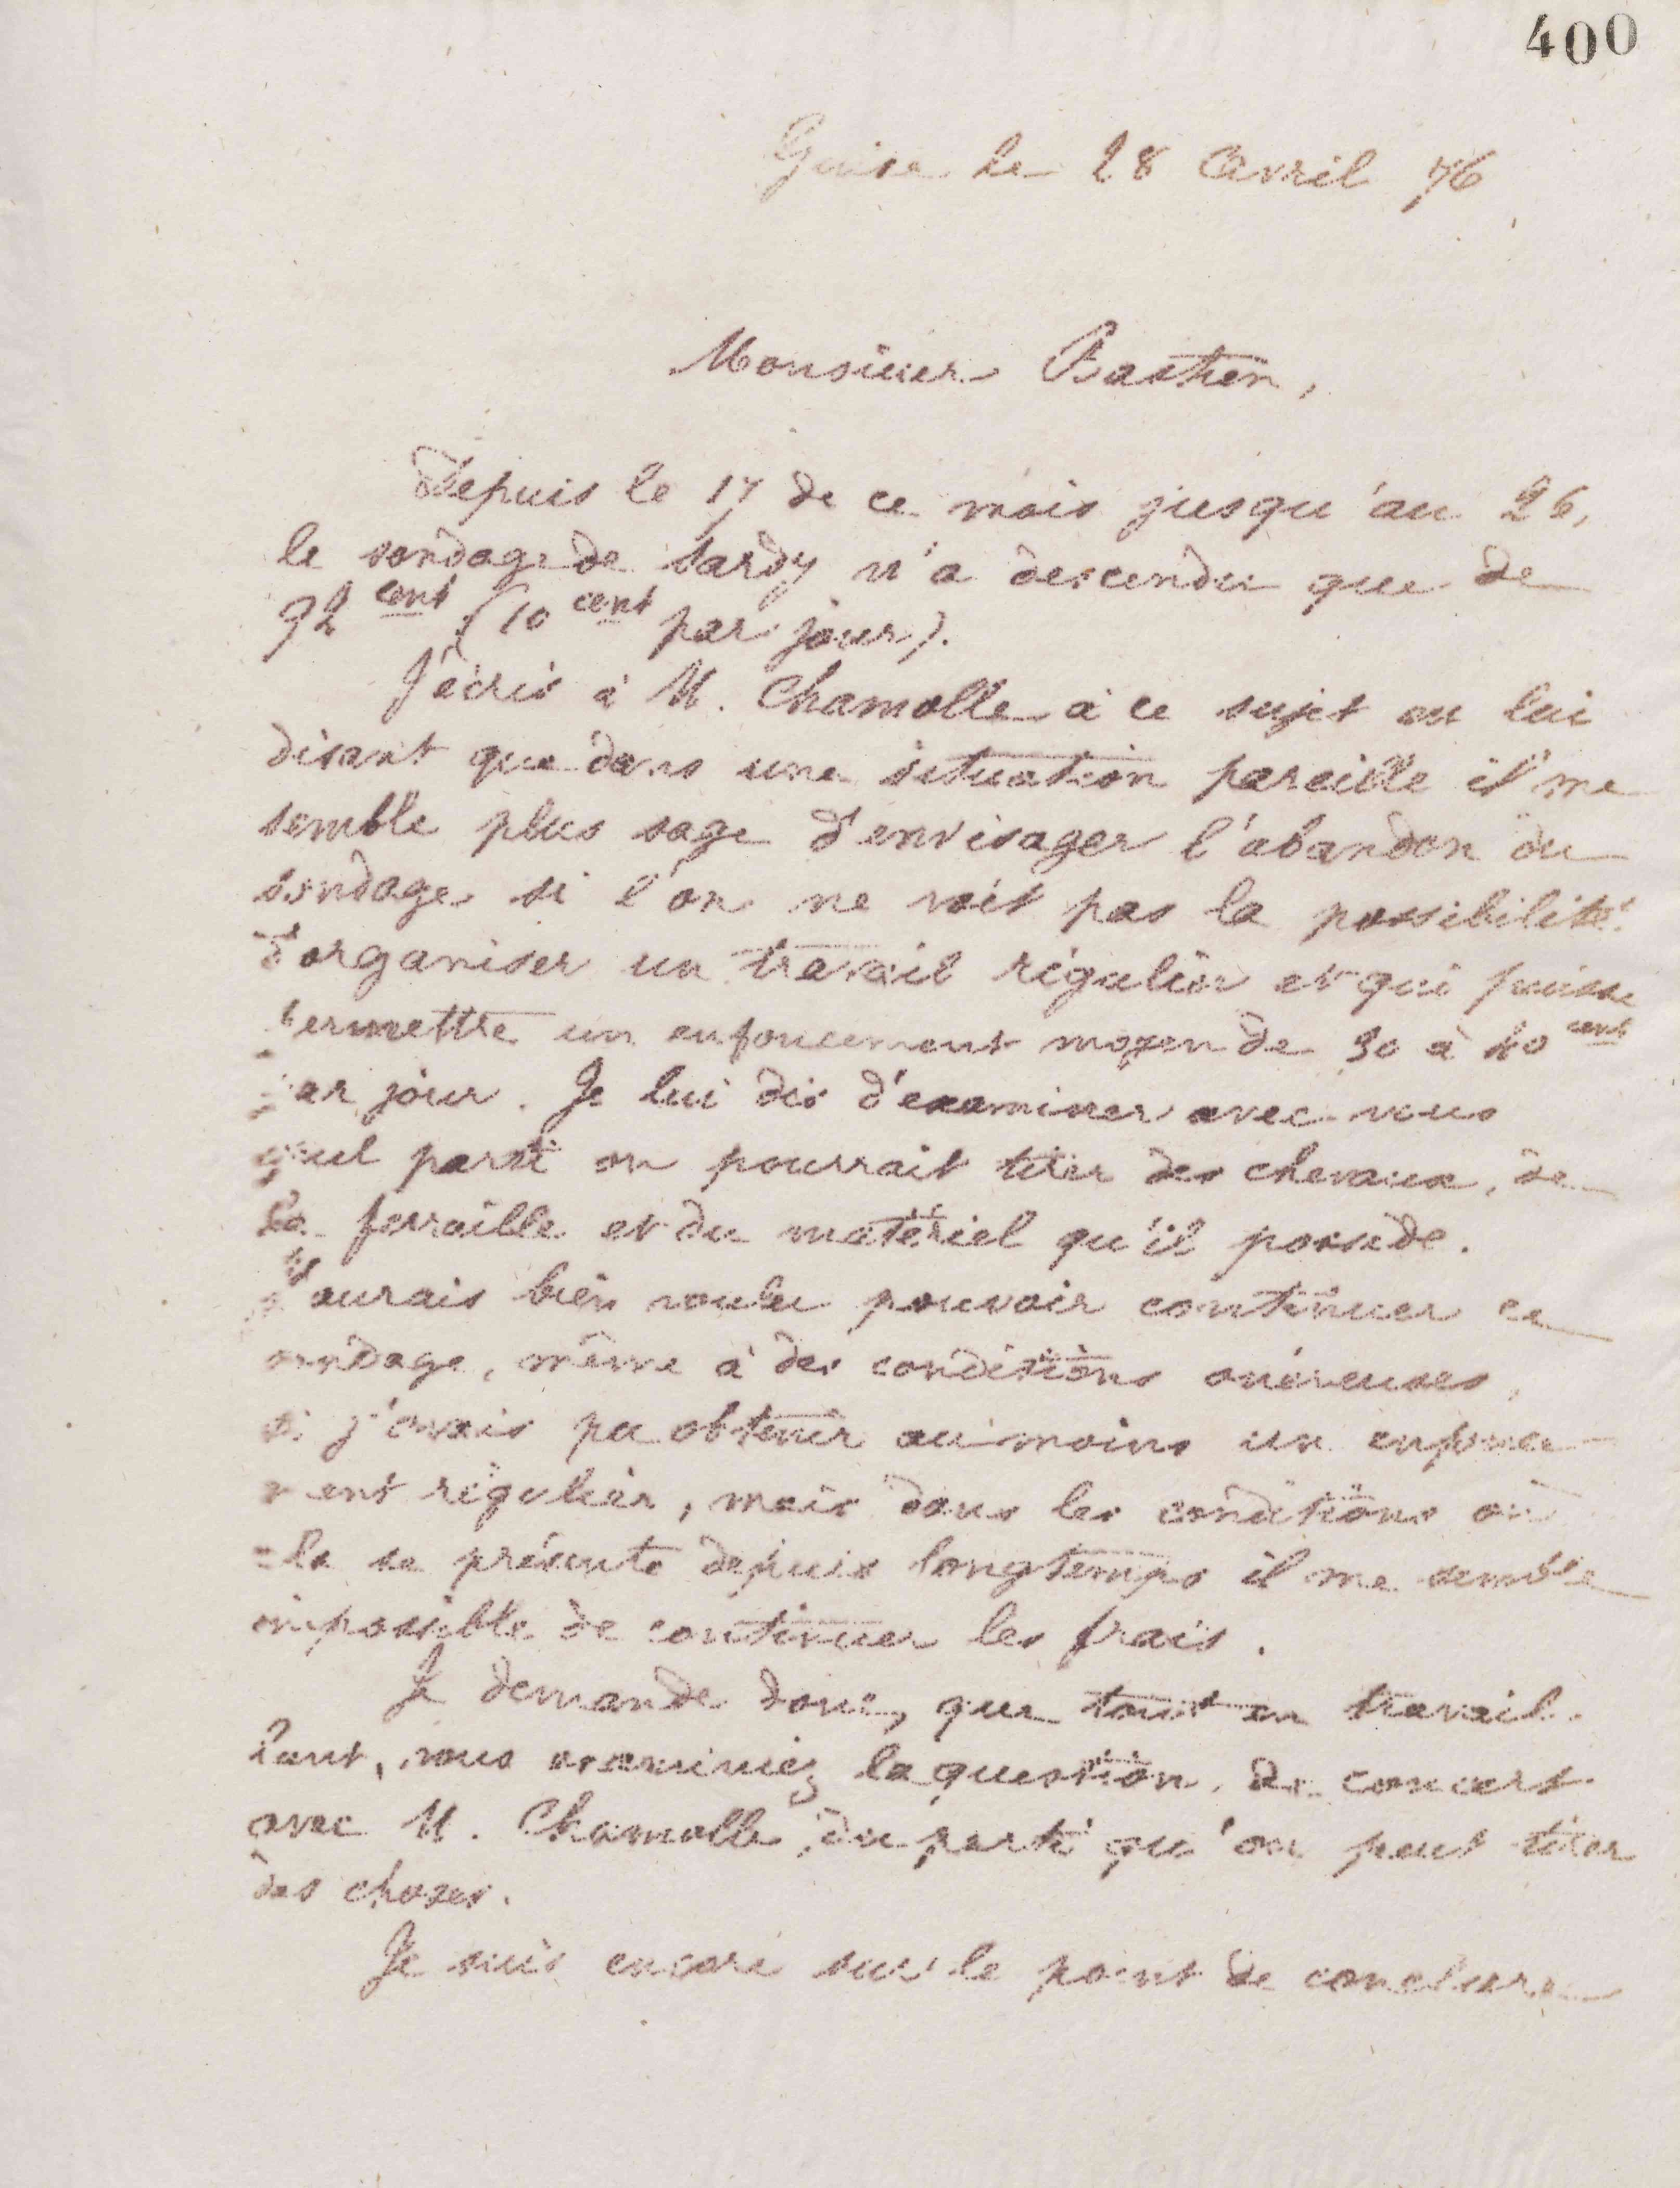 400
Guise le 28 Avril 76
Monsieur Bastien,
Depuis le 17 de ce mois jusqu'au 26,
le sondage de Sardy n'a descendu que de
92 cent (10 cent par jour).
J'écris à M. Chamolle à ce sujet en lui
disant que dans une situation pareille il me
semble plus sage d'envisager l'abandon du
sondage si l'on ne voit pas la possibilité
d'organiser un travail régulier et qui puisse
permettre un enfoncement moyen de 30 à 40 cent
par jour. Je lui dis d'examiner avec vous
quel parti on pourrait tirer des chevaux, de
la ferraille et du matériel qu'il possède.
J'aurais bien voulu pouvoir continuer ce
sondage, même à des conditions onéreuses,
si j'avais pu obtenir au moins un enfonce-
ment régulier, mais dans les conditions où
cela se présente depuis longtemps il me semble
impossible de continuer les frais.
Je demande donc, que tout en travail-
lant, vous examiniez la question, de concert
avec M. Chamolle, du parti qu'on peut tirer
des choses.
Je suis encore sur le point de conclure